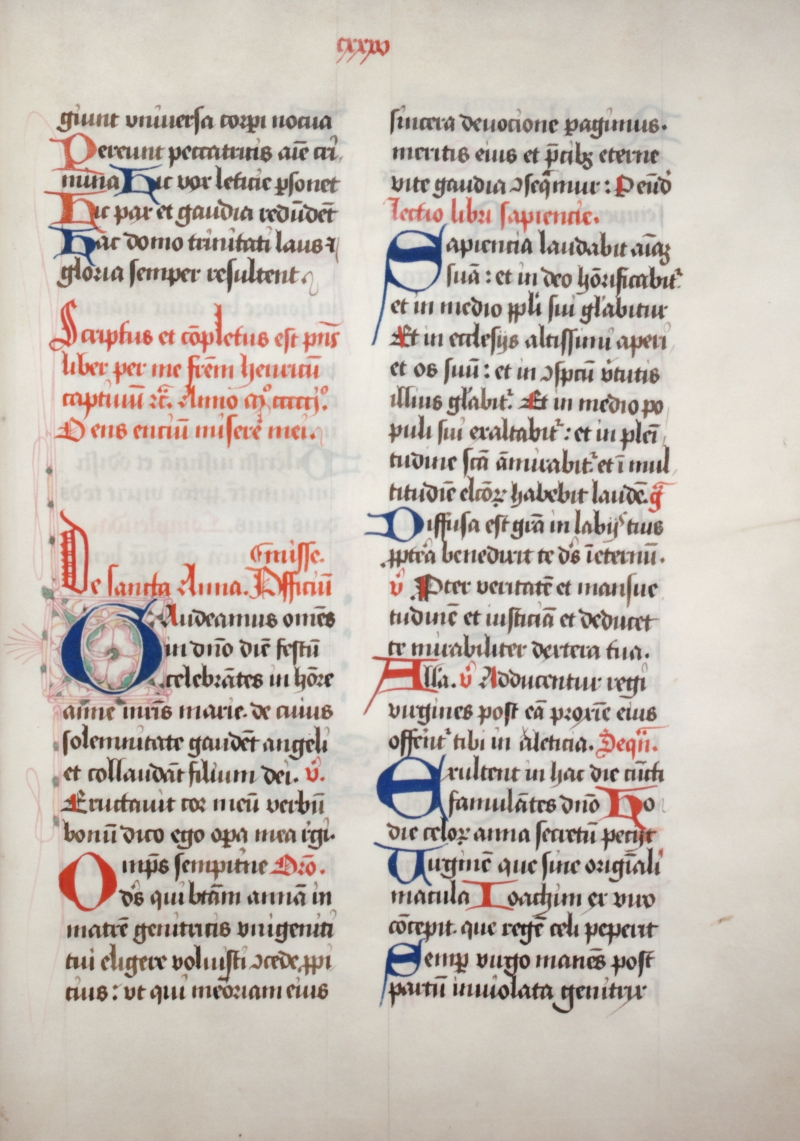 cxxxv
giunt vniuersa corpi nociua
Pereunt peccatricis aīe cri
mina Hic vox leticie ꝑsonet
Hic pax et gaudia redūdēt
Hac domo trinitati laus ⁊
gloria semper resultent.
Scriptus et cōpletus est pn̄s
liber per me frēm henricū
captiuū ⁊c̄. Anno
Deus enciū miserē mei.
De sancta Anna. Officiū misse.
GAudeamus omēs
in dn̄o diē festū
celebrātes in hōre
anne mr̄is marie. de cuius
solemnitate gaudēt angeli
et collaudāt filium dei. v̄.
Eructauit cor meū verbū
bonū dico ego oꝑa mea rēgi.
Omp̄s sempitn̄e Oro.
ds̄ qui btām annā in
matrē genitricis vnigeniti
tui eligere voluisti ↄcede ꝓpi
cius: vt qui meōriam eius
sincera deuocione ꝑagimus.
meritis eius et p̄cibꝫ eterne
vite gaudia ↄseq̄mur: P
Lectio libri sapiencie.
Sapiencia laudabit aīaꝫ
suā: et in deo hōrificabit᷑
et in medio ꝓpli sui gl̄abitur
Et in ecclesijs altissimi aperi
et os suū: et in ↄspcū v̄tutis
illius gl̄abit᷑. Et in medio po
puli sui exaltabit᷑: et in plei
tudine scā āmirabit᷑ et ī mul
titudiē elcōꝝ habebit laudē. ḡ
Diffusa est grā in labijs tuis
ꝓpterā benedixit te ds̄ īeternū.
v̄ Pter veritatē et mansue
tudinē et iusticiā et deducet
te mirabiliter dextera tua.
Alla. v̄ Adducentur regi
virgines post eā proxīe eius
offerūt᷑ tibi in leticia. Sequē.
Exultent in hac die cūcti
famulātes dn̄o Ho
die celoꝝ anna secretū petijt
Virginē que sine origīali
macula Ioachim ex viro
cōcepit. que regē celi peperit
Semꝑ virgo manēs post
partū inuiolata genitrix